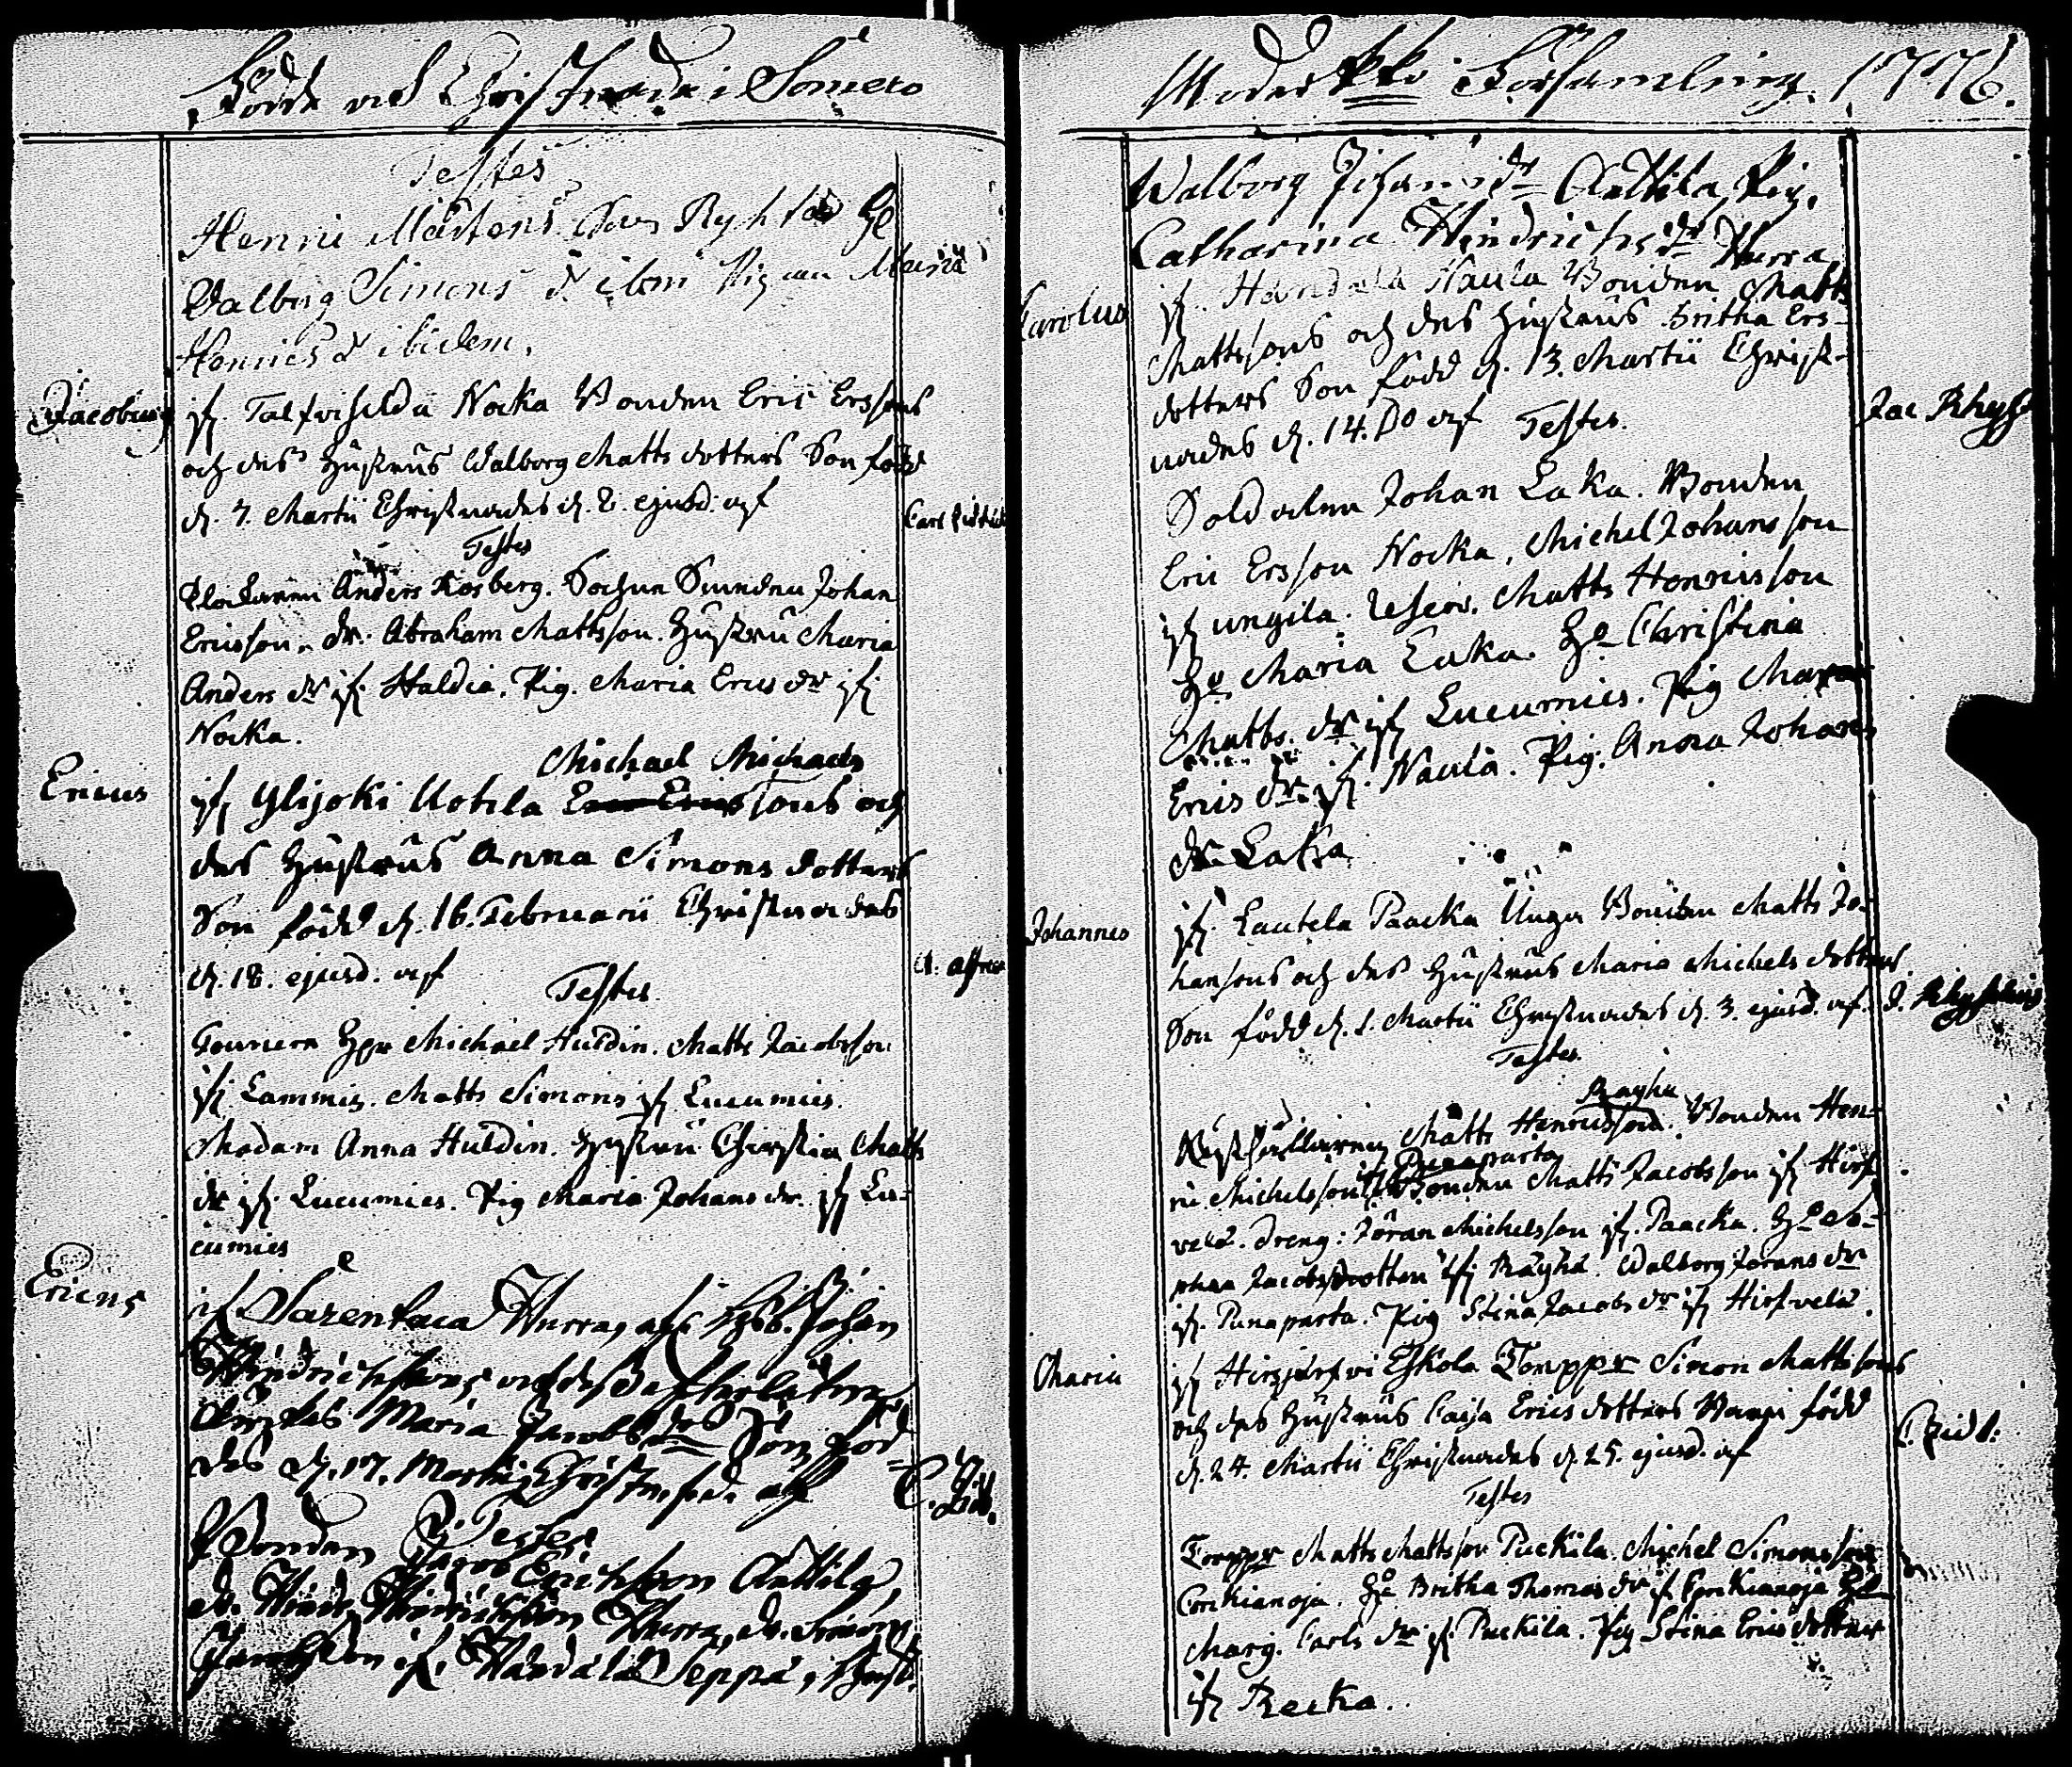 Född och Christnade i Somero
Testes
Henric Mårtens Son Ryhtä H:
Valborg Simons dr ibm Pigan Maria
Henrics dr ibidem.
Jacobus
ifr. Talpeisilda Nocka Bonden Eric Erssons
och des Hustrus Walborg Matts dotters Son född
d. 7. Martii Christnades d. 8. ejusd. af
Carl
Testes
Klockaren Anders Kosberg. Sochne Smeden Johan
Ericsson. dr. Abraham Mattsson. Hustru Maria
Anders dr ifr. Haldia. Pig. Maria Erics dr ifr
Nocka.
Ericus
Michael Michaels
ifr Ylijoki Uotila Eric Ericssons och
des Hustrus Anna Simons dotters
Son född d. 16. Februarii Christnades
d. 18. ejusd. af
Testes.
Michael Huldin. Matts Jacobsson
ifr. Lammis. Matts Simons ifr. Lucumies.
Madam Anna Huldin. Hustru Christin Matts
dr ifr. Lucumies. Pig Maria Johans dr. ifr Lu-
cumies
Ericus
ifr Särentaca Hurra, afl. Husb. Johan
Hindrichssons och deß efterlåtna
Enkas Maria Jacobs dr Son föd-
des d. 17. Martii, Christn. af
C. Lid.
Testes
Bonden Jacob Erichsson Anttila,
d. Hind. Hindrichsson Hurra, dr. Simon
ifr. Handala Seppä, Hust.
Moder Kko Församling. 1776.
Walborg Johans dr Anttila, Pig.
Catharina Hindrichs dr Hurra
Carolus
ifr. Handala Naula Bonden Matts
Mattssons och des Hustrus Britha Ers-
dotters Son född d. 13. Martii Christ-
nades d. 14. Do af Testes.
Jac Rhyss
Soldaten Johan Laka. Bonden
Eric Ersson Nocka, Michel Johansson
ifr ungila. Matts Henricsson
Ho Maria Laka. Ho Christina
Matts. dr ifr Lucumies. Pig Maria
Erics dr. ifr. Naula. Pig. Anna Johans
dr. Laka.
Johannes
ifr. Lautela Paacka Unga Bonden Matts Jo-
hanssons och des Hustrus Maria Michels dotters
Son född d. 1. Martii Christnades d. 3. ejusd. af.
Testes.
Rusthållaren Matts Henricsson Rayhä. Bonden Hen-
ric Michelsson ifr Punaparta Bonden Matts Jacobsson ifr Hirs-
velä. Dreng: Jöran Michelsson ifr. Paacka. Ho
Jacobsdotter ifr Räyhä. Walborg Jorans dr
ifr. Punaparta. Pig Stina Jacobs dr ifr Hirsvelä.
Maria
ifr Hirsjärfvi Eskola Torppr Simon Mattssons
och des Hustrus Caisa Erics dotters Barn född
d. 24. Martii Christnades d. 25. ejusd. af
C. Lid t:
Testes
Torppr Matts Mattsson Puckila. Michel Simonsson
Corkianoja. Ho Britha Thomas dr if Corkianoja Ho
Marg. Carls dr if Puckila. Pig Stina Erics dotter
ifr Recka.